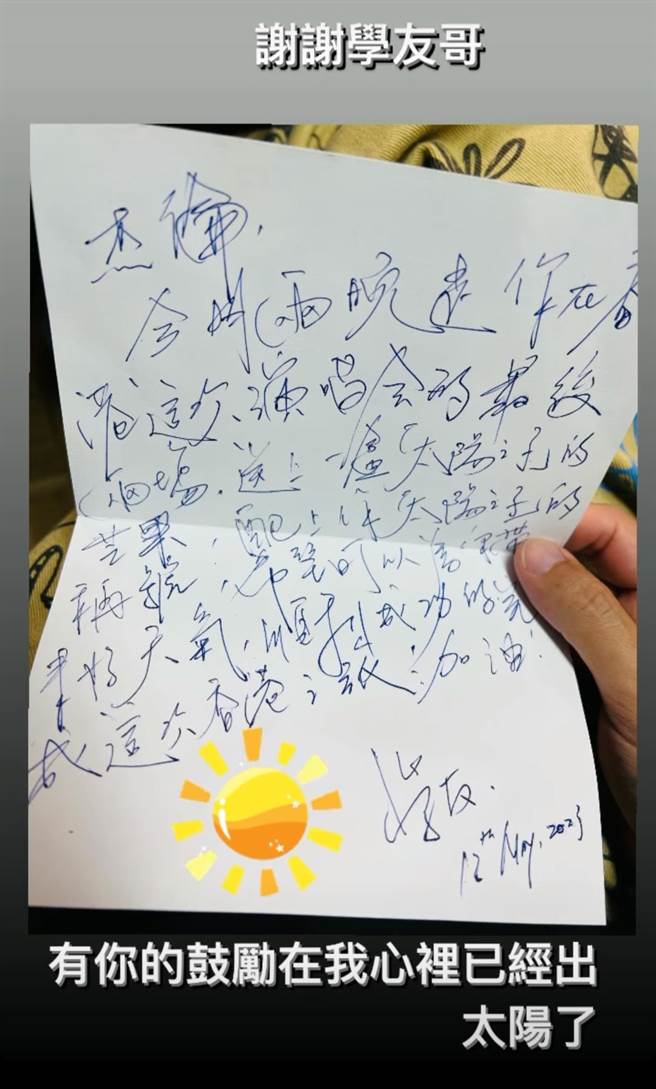 謝謝學友哥
杰倫,
今明兩晚是你在香
港這次演唱会的最後
兩場,送上一盒「太陽之子」的
芒果,配上你「太陽之子」的
稱號,希望可以為你帶
來好天氣,順利成功的完
成這次香港之旅!加油!
學友.
12th May, 2023
有你的鼓勵在我心裡已經出
太陽了